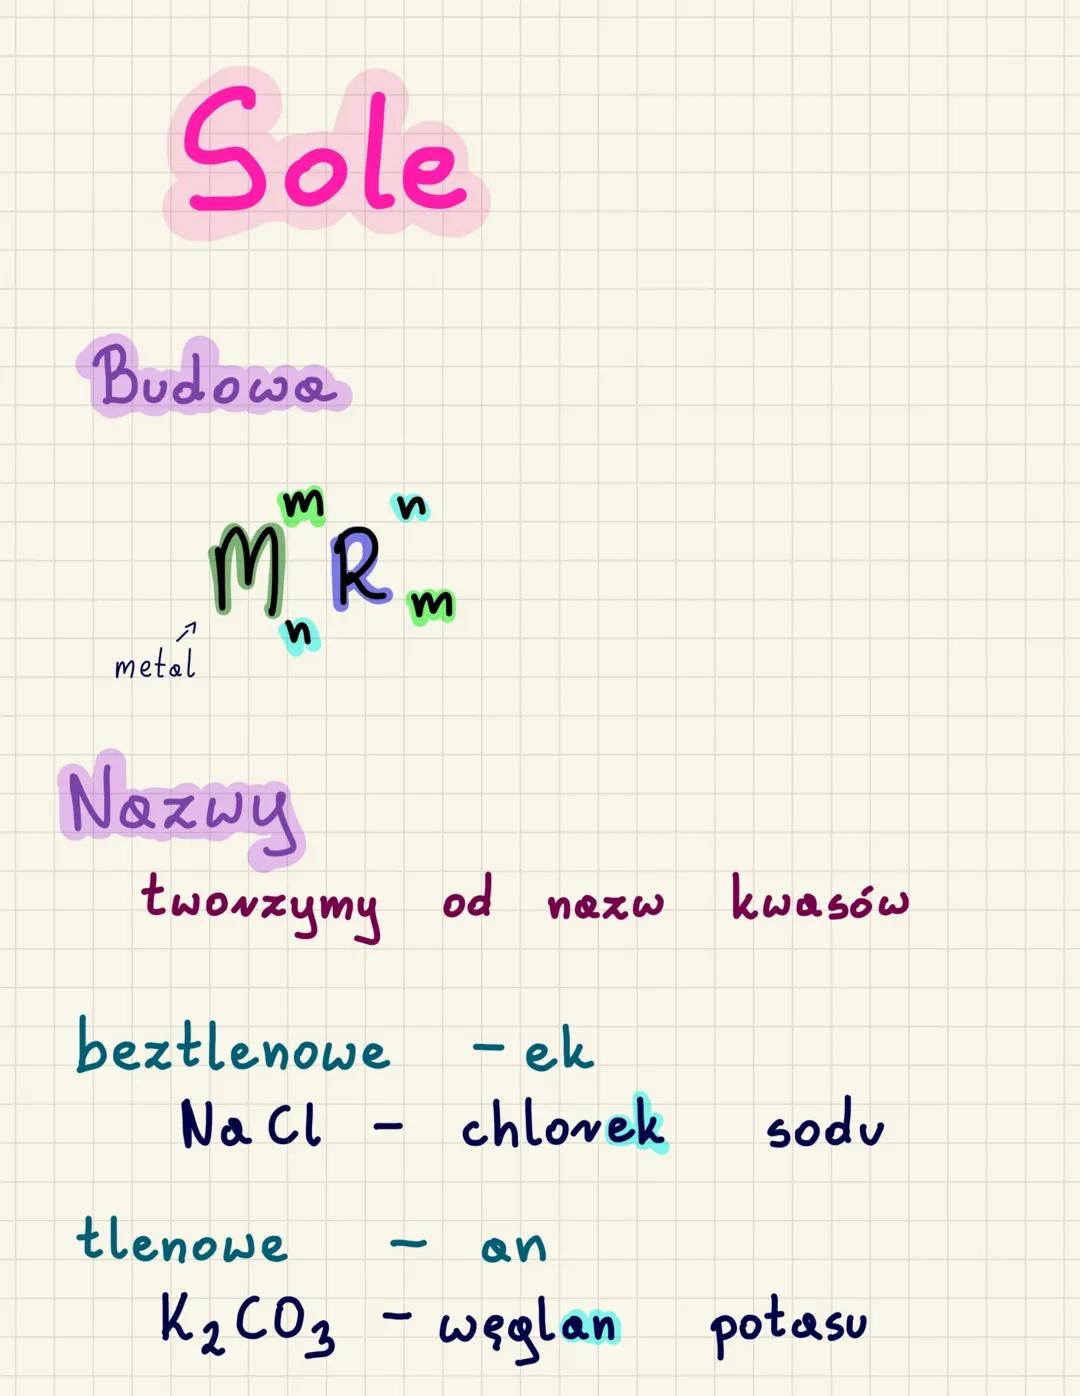 Sole
Budowa
M m n R n m
metal
Nazwy
tworzymy od nazw kwasów
beztlenowe - ek
NaCl - chlorek sodu
tlenowe - an
K₂CO₃ - węglan potasu